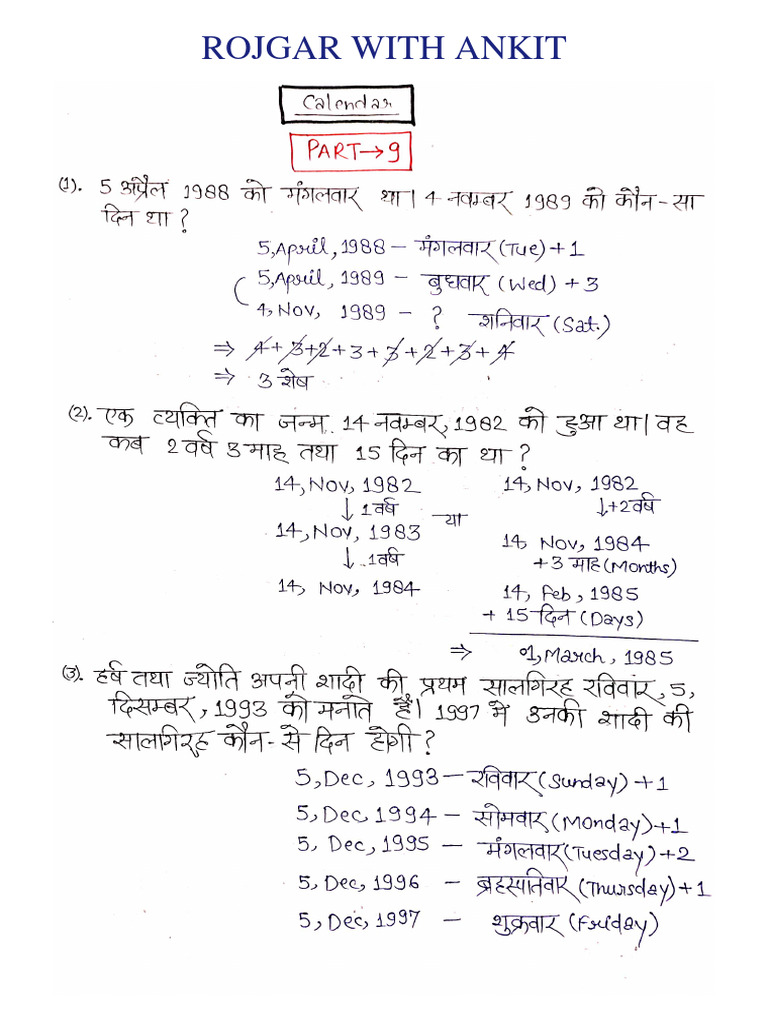 ROJGAR WITH ANKIT
Calendar
PART→9
(1). 5 अप्रैल 1988 को मंगलवार था। 4 नवम्बर 1989 को कौन-सा
दिन था ?
5,April,1988 – मंगलवार (Tue) + 1
5,April, 1989 – बुधवार (Wed) + 3
4, Nov, 1989 – ? शनिवार (Sat.)
⇒ 4 + 3 + 2 + 3 + 3 + 2 + 3 + 4
⇒ 3 शेष
(2). एक व्यक्ति का जन्म 14 नवम्बर, 1982 को हुआ था। वह
कब 2 वर्ष 3 माह तथा 15 दिन का था ?
14, Nov, 1982 14, Nov, 1982
↓ 1 वर्ष या ↓+2 वर्ष
14, Nov, 1983 14 Nov, 1984
↓ 1 वर्ष + 3 माह (Months)
14, Nov, 1984 14, Feb, 1985
+ 15 दिन (Days)
⇒ 01, March, 1985
(3). हर्ष तथा ज्योति अपनी शादी की प्रथम सालगिरह रविवार, 5,
दिसम्बर, 1993 को मनाते है। 1997 मे उनकी शादी की
सालगिरह कौन-से दिन होगी ?
5, Dec, 1993 – रविवार (Sunday) + 1
5, Dec, 1994 – सोमवार (Monday) + 1
5, Dec, 1995 – मंगलवार (Tuesday) + 2
5, Dec, 1996 – ब्रहसातिवार (Thursday) + 1
5, Dec, 1997 – शुक्रवार (Friday)